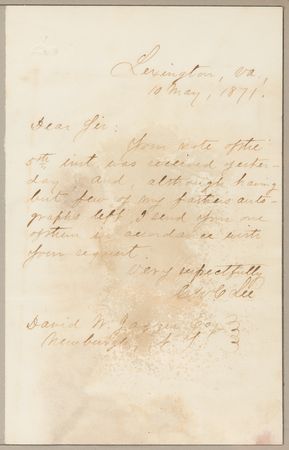 Lexington, Va.,
10 May, 1871.
Dear Sir:
Your note of the
5th inst. was received yester-
day and, although having
but few of my father's auto-
graphs left, I send you one
of them in accordance with
your request.
Very respectfully
G W C Lee
David W. Jagger Esq
Newburgh N Y